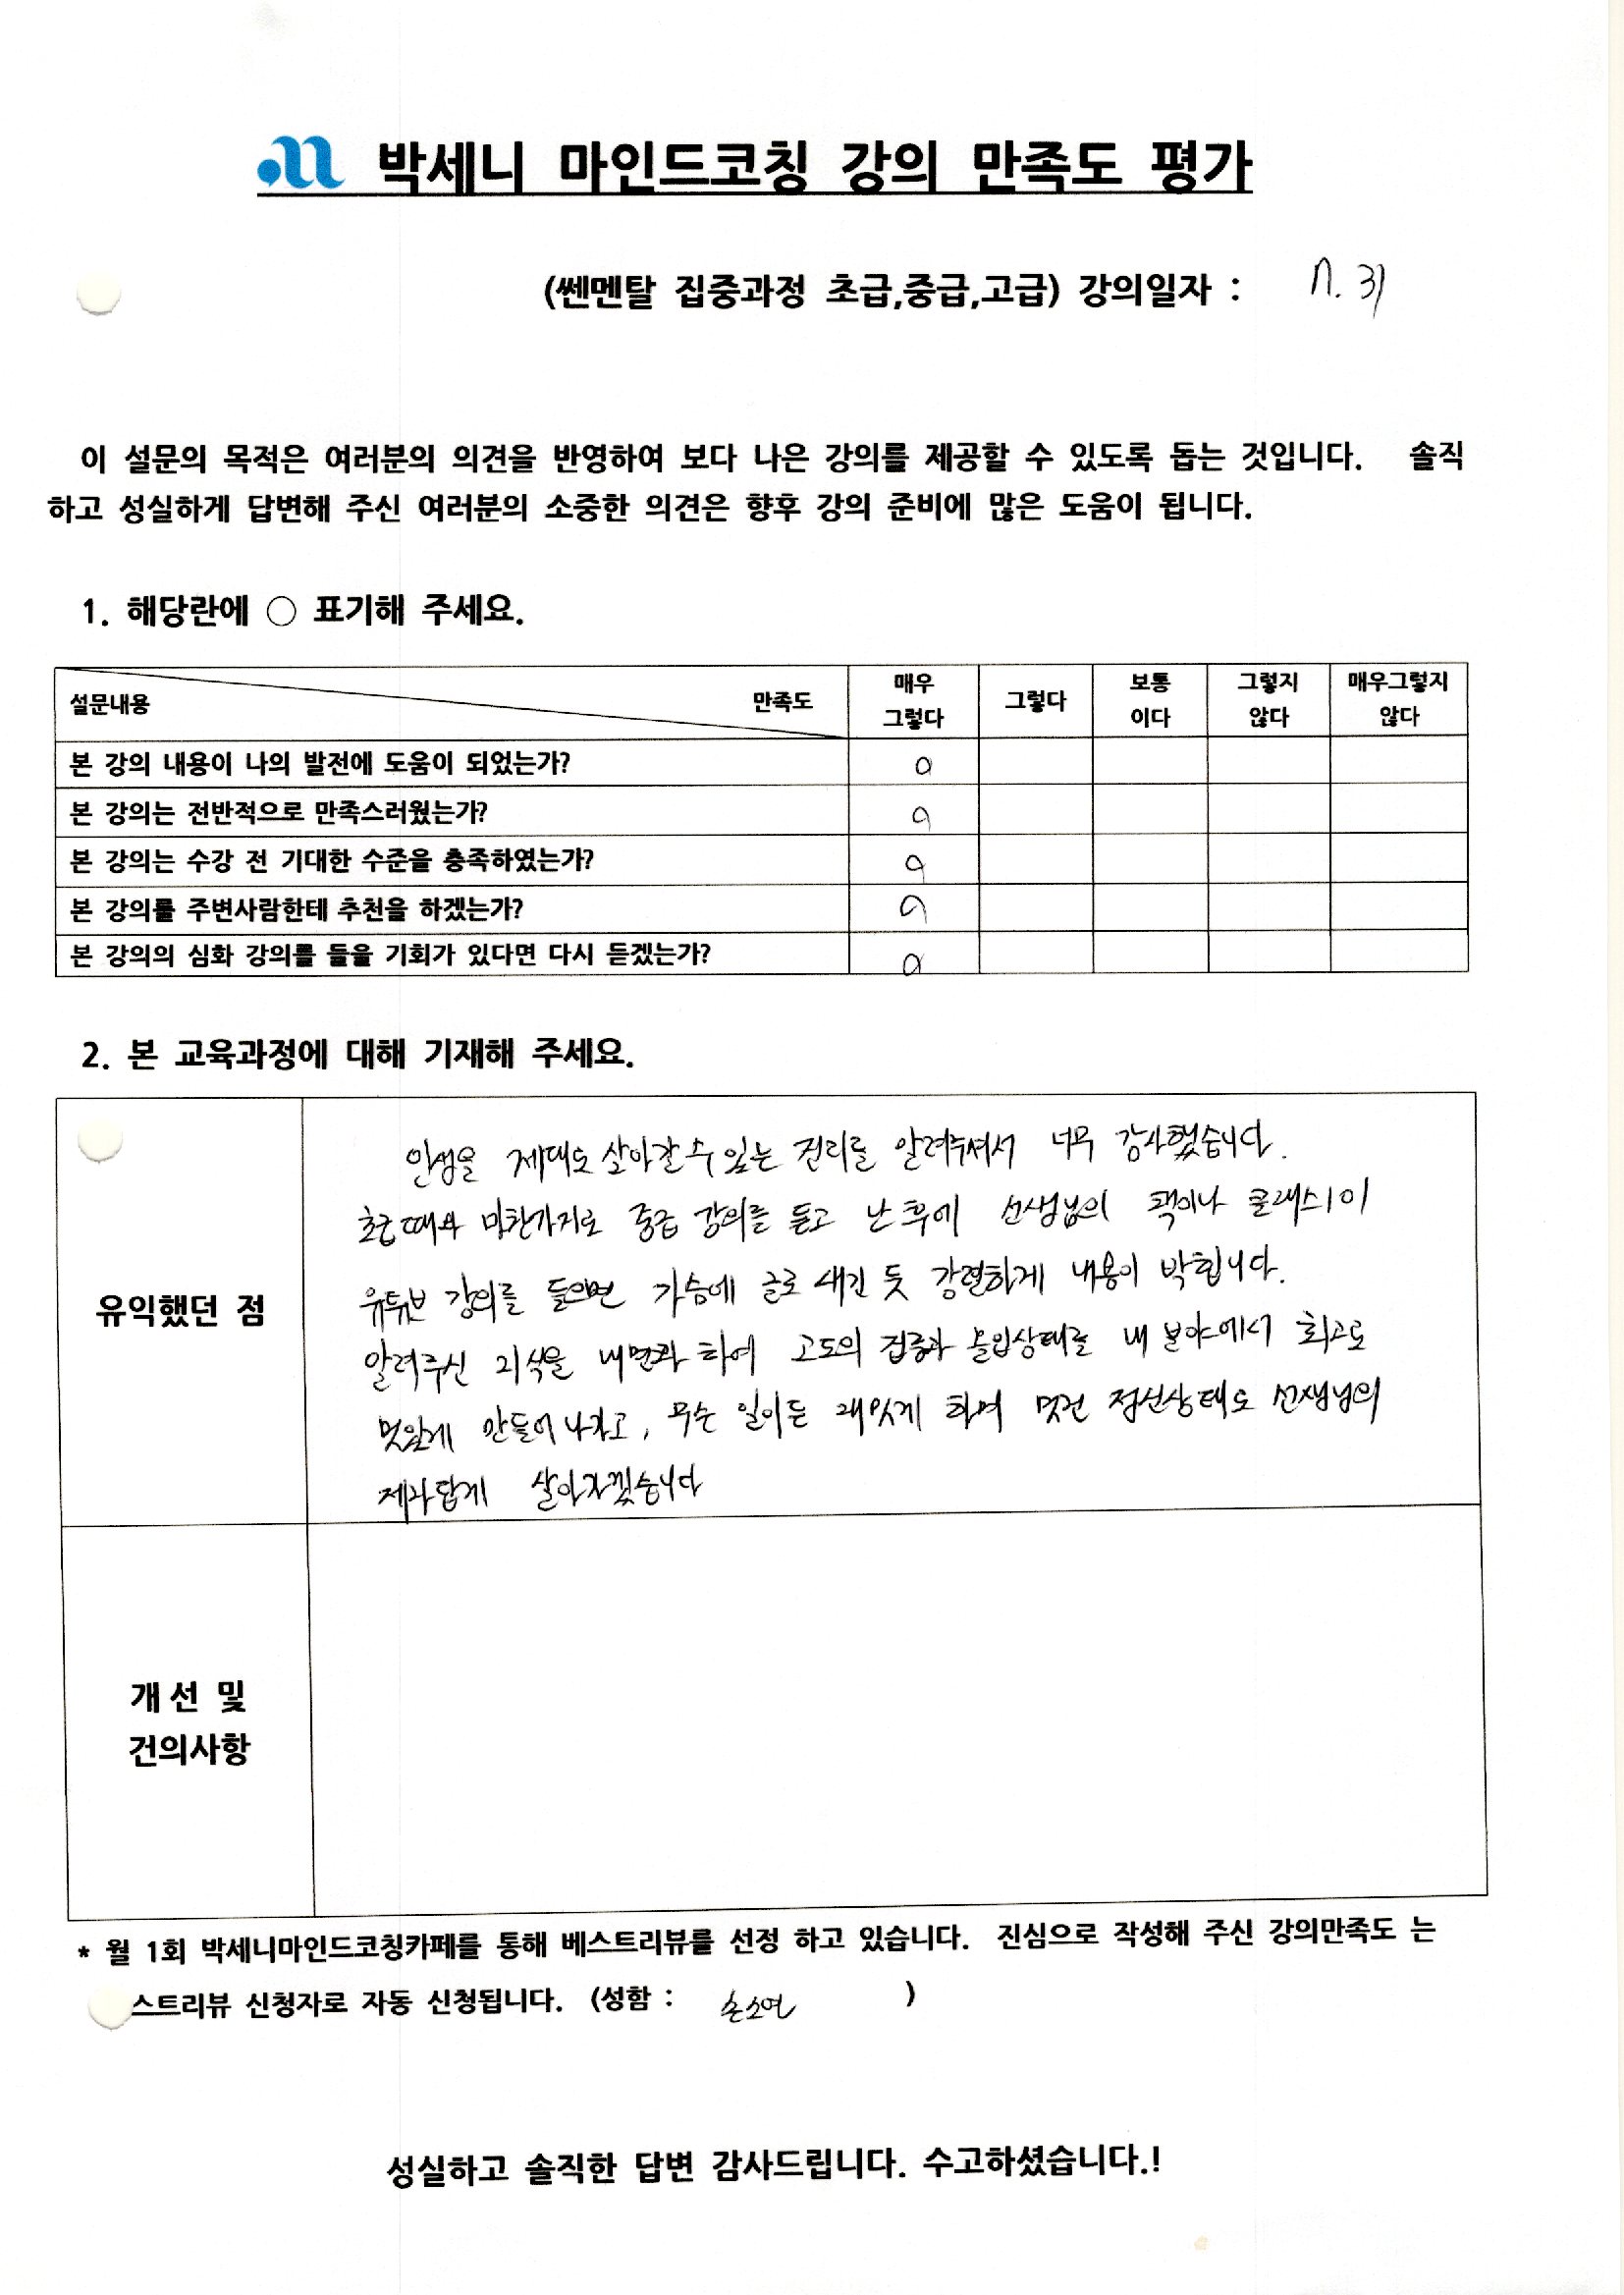 박세니 마인드코칭 강의 만족도 평가
(쎈멘탈 집중과정 초급,중급,고급) 강의일자 : 7. 31
이 설문의 목적은 여러분의 의견을 반영하여 보다 나은 강의를 제공할 수 있도록 돕는 것입니다. 솔직
하고 성실하게 답변해 주신 여러분의 소중한 의견은 향후 강의 준비에 많은 도움이 됩니다.
1. 해당란에 ○ 표기해 주세요.
설문내용 만족도 매우 그렇다 그렇다 보통 이다 그렇지 않다 매우그렇지 않다
본 강의 내용이 나의 발전에 도움이 되었는가? O
본 강의는 전반적으로 만족스러웠는가? O
본 강의는 수강 전 기대한 수준을 충족하였는가? O
본 강의를 주변사람한테 추천을 하겠는가? O
본 강의의 심화 강의를 들을 기회가 있다면 다시 듣겠는가? O
2. 본 교육과정에 대해 기재해 주세요.
유익했던 점
인생을 제대로 살아갈 수 있는 진리를 알려주셔서 너무 감사했습니다.
초급때와 마찬가지로 중급 강의를 듣고 난 후에 선생님의 책이나 클래스101
유튜브 강의를 들으면 가슴에 글로 새긴 듯 강렬하게 내용이 박힙니다.
알려주신 지식을 내면화 하여 고도의 집중과 몰입상태를 내 분야에서 최고로
멋있게 만들어 나가고, 무슨 일이든 재밌게 하며 멋진 정신상태로 선생님의
제자답게 살아가겠습니다
개선 및
건의사항
* 월 1회 박세니마인드코칭카페를 통해 베스트리뷰를 선정 하고 있습니다. 진심으로 작성해 주신 강의만족도 는
스트리뷰 신청자로 자동 신청됩니다. (성함 : 손소연 )
성실하고 솔직한 답변 감사드립니다. 수고하셨습니다.!